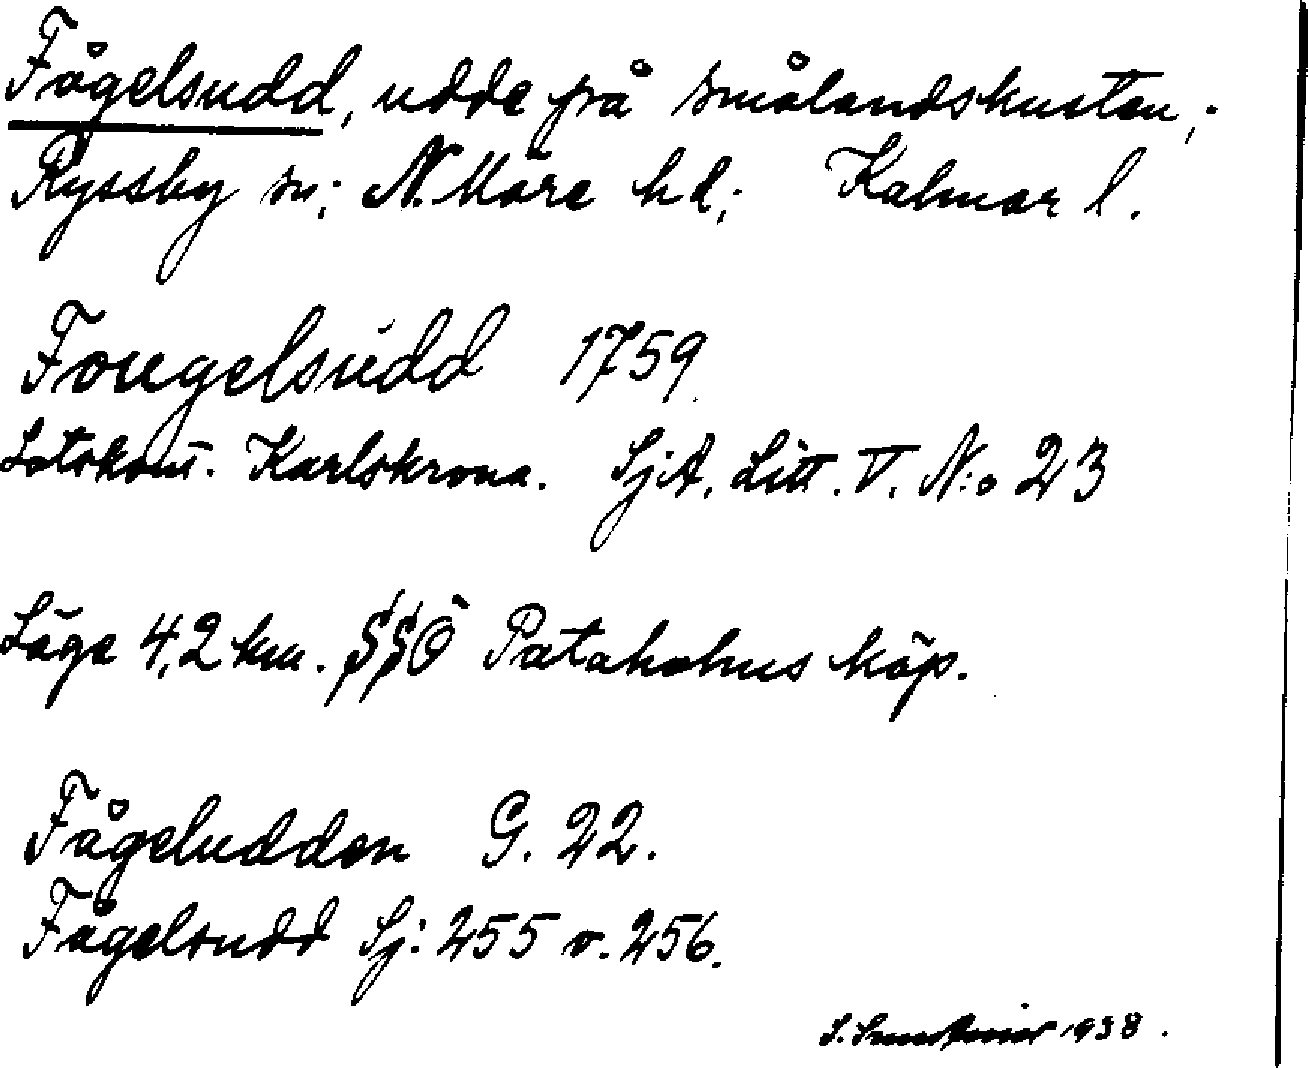 Fågelsudd, udde på smålandskusten,;
Ryssby sn; N. Möre hd; Kalmar l.
Fougelsudd 1759.
Lotskont. Karlskrona. SjA. Litt. V. N:o 23
Läge 4,2 km. SSÖ Pataholms köp.
Fågeludden G. 22.
Fågelsudd Sj: 255 o. 256.
S. 1938.